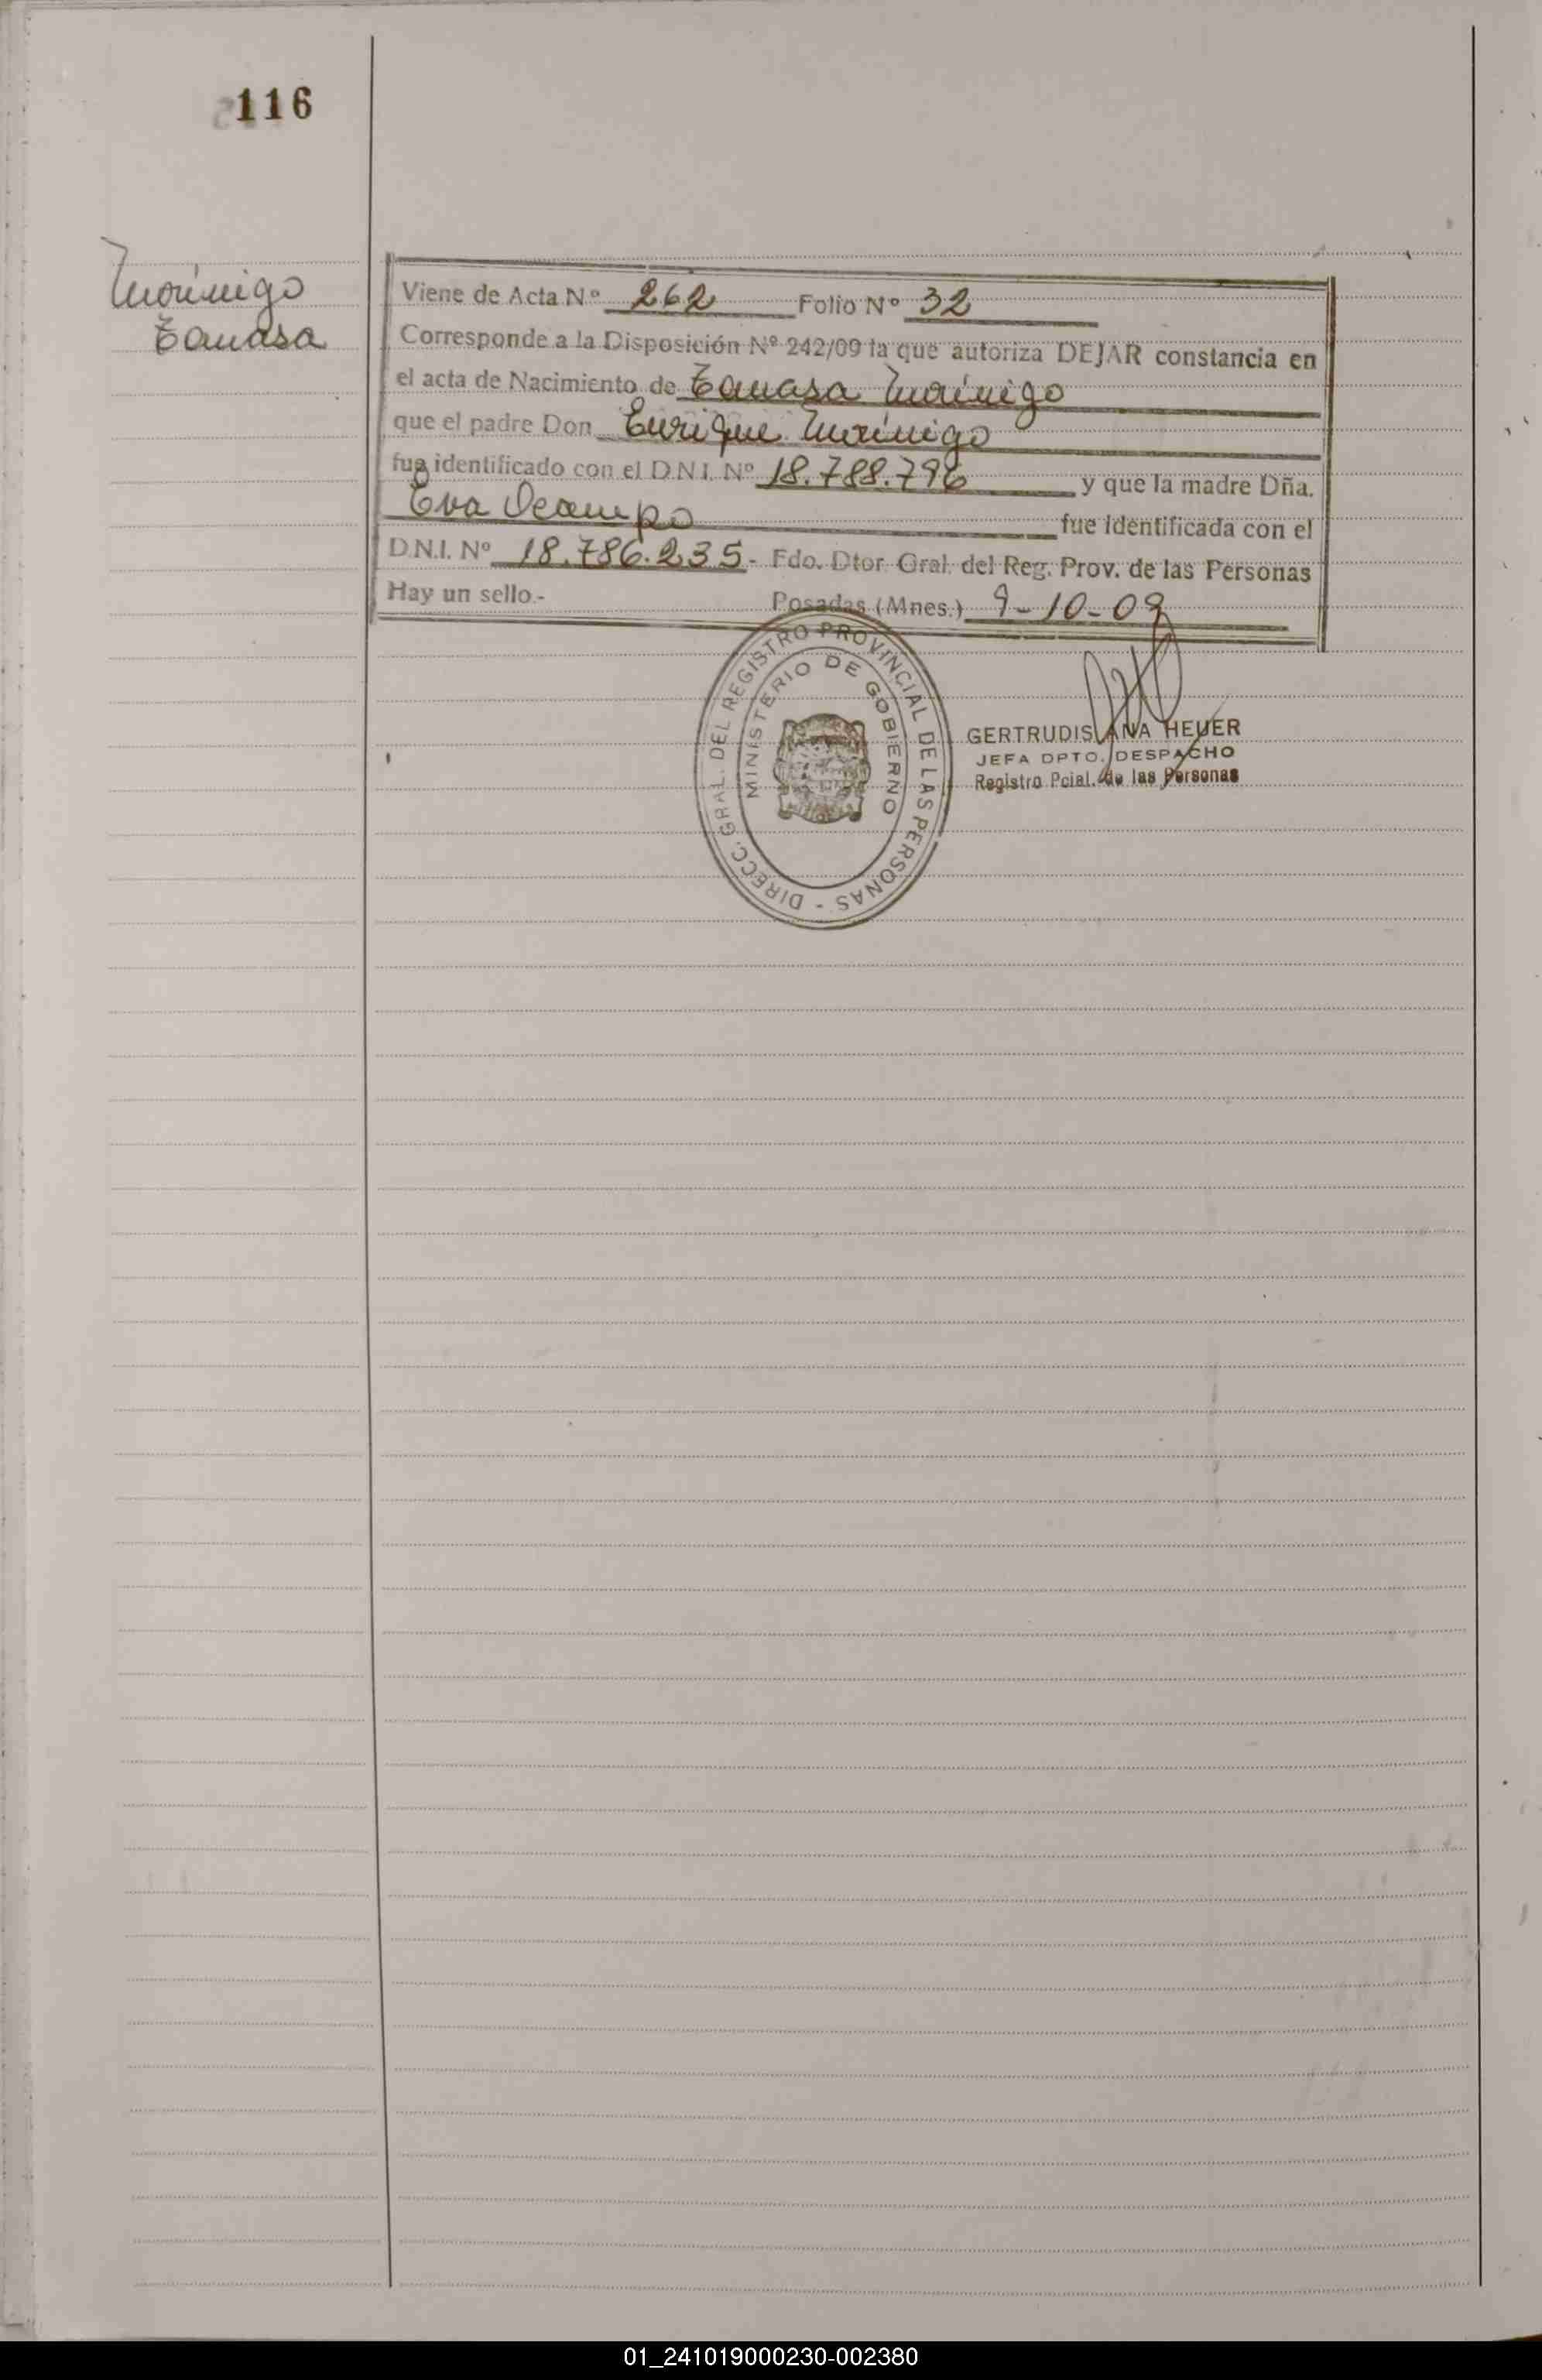 116
Morínigo
Tamasa
Viene de Acta Nº 262 Folio Nº 32
Corresponde a la Disposición Nº 242/09 la que autoriza DEJAR constancia en
el acta de Nacimiento de Tamasa Morínigo
que el padre Don Enrique Morínigo
fue identificado con el D.N.I. Nº 18.788.796 y que la madre Dña.
Eva Ocampo fue identificada con el
D.N.I. Nº 18.786.235- Fdo. Dtor Gral. del Reg. Prov. de las Personas
Hay un sello.- Posadas (Mnes.) 9-10-09
DIRECC. GRAL. DEL REGISTRO PROVINCIAL DE LAS PERSONAS -
MINISTERIO DE GOBIERNO
GERTRUDIS ANA HEUER
JEFA DPTO. DESPACHO
Registro Pcial. de las Personas
01_241019000230-002380